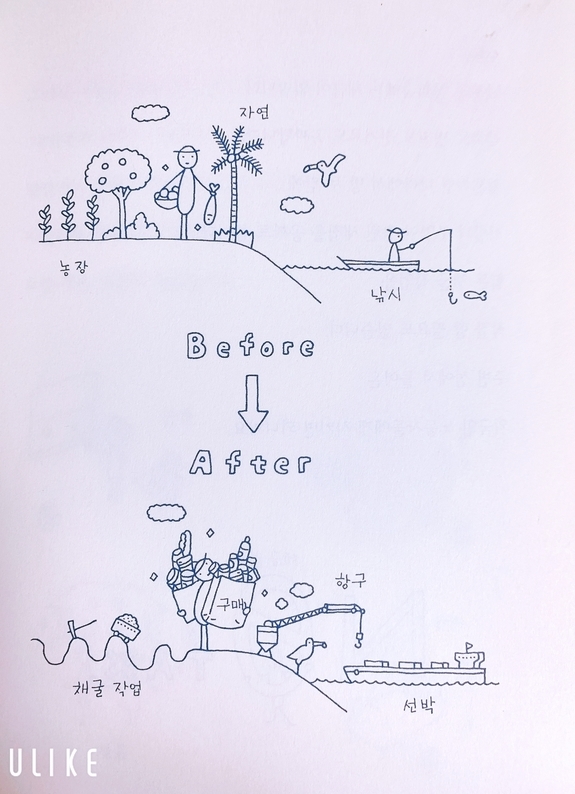 자연
농장
낚시
Before
After
구매
항구
채굴 작업
선박
ULIKE